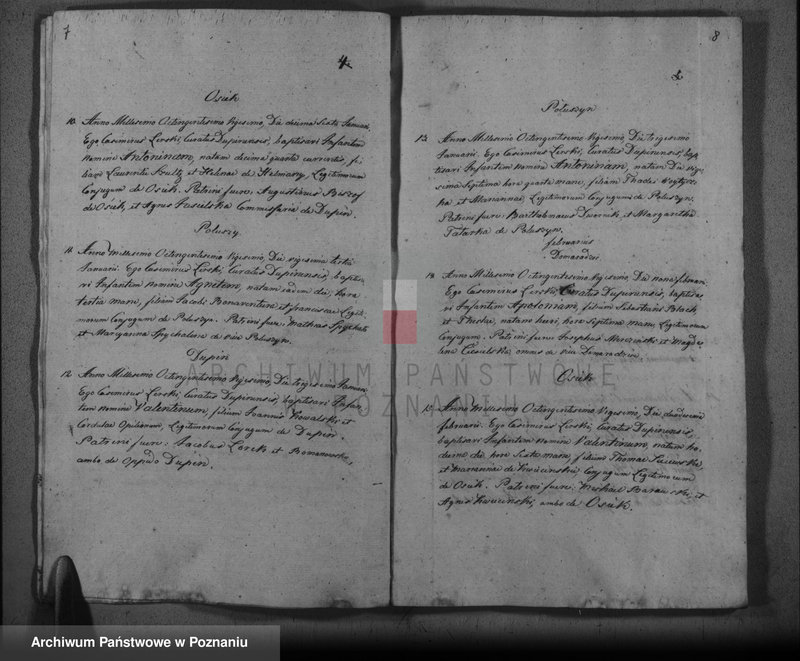 7
4
Osiek
10. Anno Millesimo Octingentesimo Vigesimo, Die decima Sexta Januarii
Ego Casimirus Lerski, Curatus Dupinensis, baptisavi Infantem
nomine Antoninam, natam decima quarta currentis, fi-
liam Laurentii et Helenae de Legitimorum
Conjugum de Osiek. Patrini fuere Augustinus
de Osiek, et Agnes Commissaria de Dupin.
Poluszy.
11. Anno Millesimo Octingentesimo Vigesimo, Die vigesima tertia
Januarii. Ego Casimirus Lerski, Curatus Dupinensis, baptisa-
vi Infantem nomine Agnetem, natam eadem die, hora
tertia mane, filiam Jacobi Bonaventura et Franciscae Legiti-
morum Conjugum de Poluszyn. Patrini fuere Mathias Spychala
et Maryanna Spychalowa de Poluszyn.
Dupin
12. Anno Millesimo Octingentesimo Vigesimo, Die trigesima Januarii
Ego Casimirus Lerski, Curatus Dupinensis, baptisavi Infan-
tem nomine Valentinum, filium Joannis Kowalski et
Cordulae Legitimorum Conjugum de Dupin.
Patrini fuere. Jacobus et
ambo de Oppido Dupin.
8
Poluszyn
13. Anno Millesimo Octingentesimo Vigesimo, Die trigesima
Januarii. Ego Casimirus Lerski, Curatus Dupinensis, bap-
tisavi Infantem nomine Antoninam, natam Die vige-
sima Septima hora quarta mane, filiam Thadei
et Mariannae, Legitimorum Conjugum de Poluszyn.
Patrini fuere: Bartholomaeus Dwornik, et Margaretha
Tatarka de Poluszyn.
februarius
Domaradzi
Anno Millesimo Octingentesimo Vigesimo, Die nona februarii
Ego Casimirus Lerski, Curatus Dupinensis, baptisa-
vi Infantem Apoloniam, filiam Sebastiani
et natam heri, hora Septima mane, Legitimorum
Conjugum. Patrini fuere Josephus et Magda-
lena omnes de
Osiek
15. Anno Millesimo Octingentesimo Vigesimo, Die duodecima
februarii. Ego Casimirus Lerski, Curatus Dupinensis,
baptisavi Infantem nomine Valentinum, natum ho-
dierna die hora Sexta mane, filium Thomae
et Mariannae de Conjugum Legitimorum
de Osiek. Patrini fuere. Michael et
Agnes ambo de Osiek.
ARCHIWUM PAŃSTWOWE
W POZNANIU
Archiwum Państwowe w Poznaniu